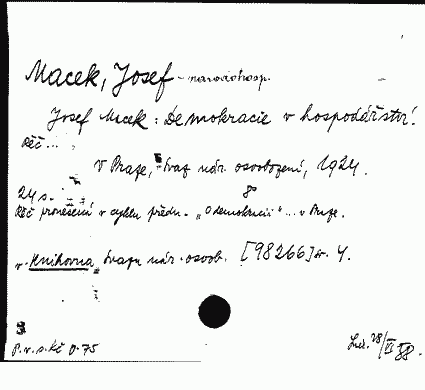 Macek, Josef - národohosp.
Josef Macek: Demokracie v hospodářství.
Řeč...
V Praze, Svaz nár. osvobození, 1924.
24 s. 8°
Řeč pronesená v cyklu předn. "O demokracii"... v Praze.
v. Knihovna Svazu nár. osvob. [98266] sv. 4.
P. v. s. Kč 0.75
28/XI 88.